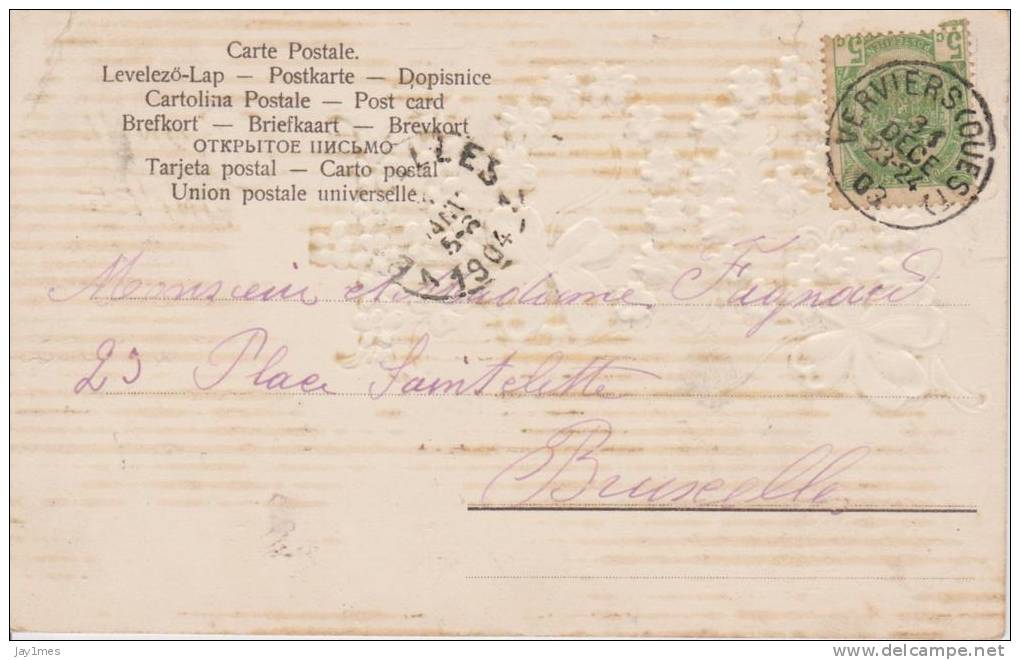 Carte Postale.
Levelező-Lap — Postkarte — Dopisnice
Cartolina Postale — Post card
Brefkort — Briefkaart — Brevkort
ОТКРЫТОЕ ПИСЬМО
Tarjeta postal — Carto postal
Union postale universelle.
5 c 5 c
VERVIERS (OUEST)
31
DECE
23-24
03
LLES 1
JANV
5-6
1904
Monsieur et Madame Fignard
23 Place Sainctelette
Bruxelles
jay1mes
www.delcampe.net